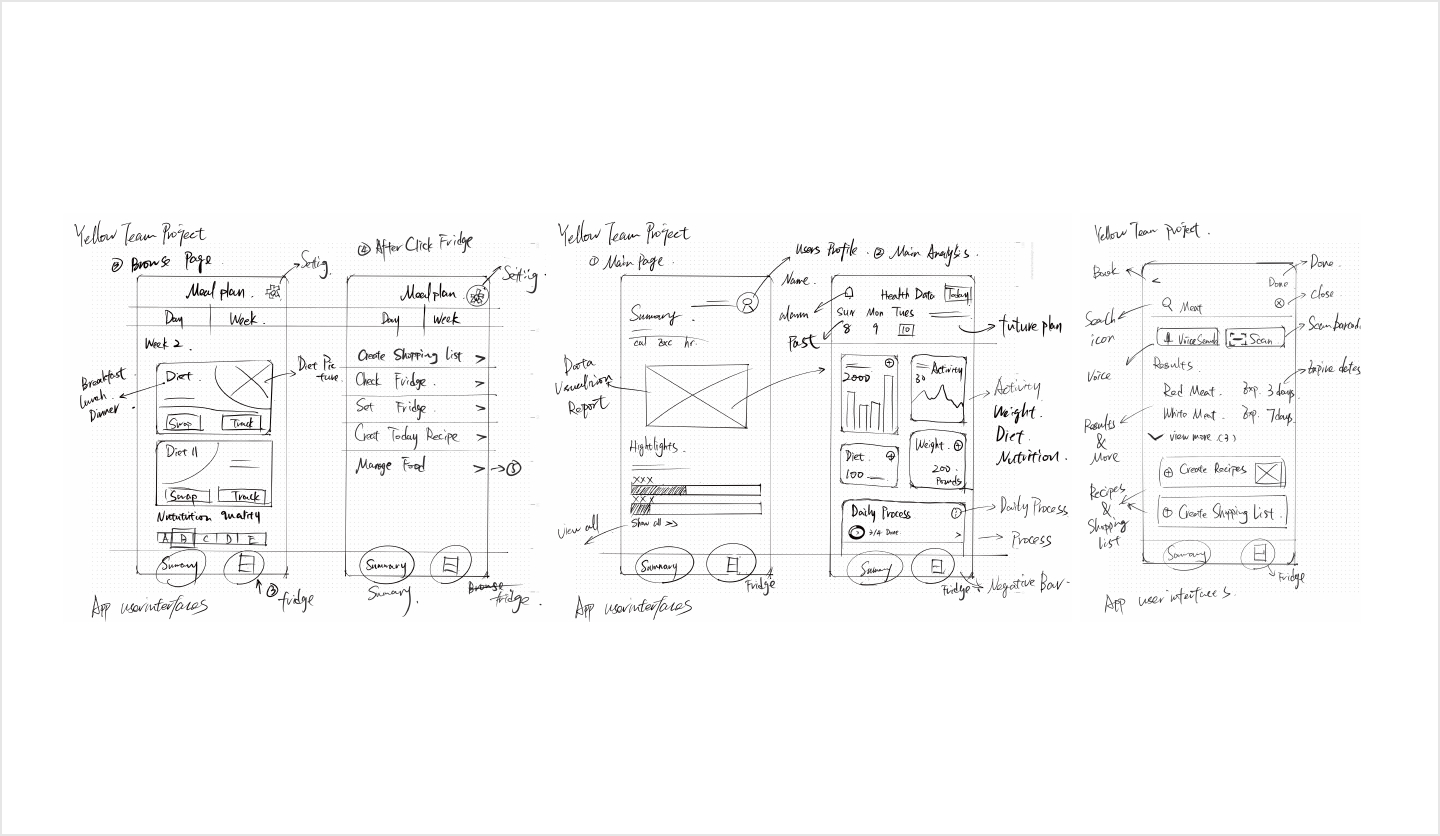 Yellow Team Project
③ Browse Page.
Setting
Meal plan.
Day
Week.
Week 2
Breakfast
Lunch.
Dinner.
Diet.
Diet Pic
ture.
Swap
Track
Diet 11
Swap
Track
Nututution quality
A B C D E
Summary
③
fridge
App userinterfaces
④ After Click Fridge
Setting
Meal plan.
Day
Week
Create Shopping List >
Check Fridge. >
Set Fridge. >
Creat Today Recipe >
Manage Food > ⑤
Summary
Summary.
Browse
fridge.
Yellow Team Project
① Main Page.
Users Profile.
Name.
Summary.
cal exc hr.
Data
Visualizion
Report
Hightlights.
xxx
xxx
Show all >>
view all
Summary
Fridge
App userinterfaces
② Main Analysis.
alarm
Health Data
Today
Sun Mon Tues
8 9 10
Past
future plan
2000
Activity
30
Activity
Weight.
Diet.
Nutrition.
Diet.
100
Weight.
200
Pounds
Daily Process
3/4 Done.
>
Daily Process
Process
Summary
Fridge
Negative Bar
Yellow Team project.
Book
<
Done
Done.
Search
icon
Meat
Close
Voice Search
Scan
Scan barcode
Voice
Results.
Expire dates
Red Meat. Exp. 3 days.
White Meat. Exp. 7 days.
view more (3)
Results
&
More
Create Recipes
Create Shopping List.
Recipes
&
Shopping
list
Summary
Fridge
App userinterfaces.